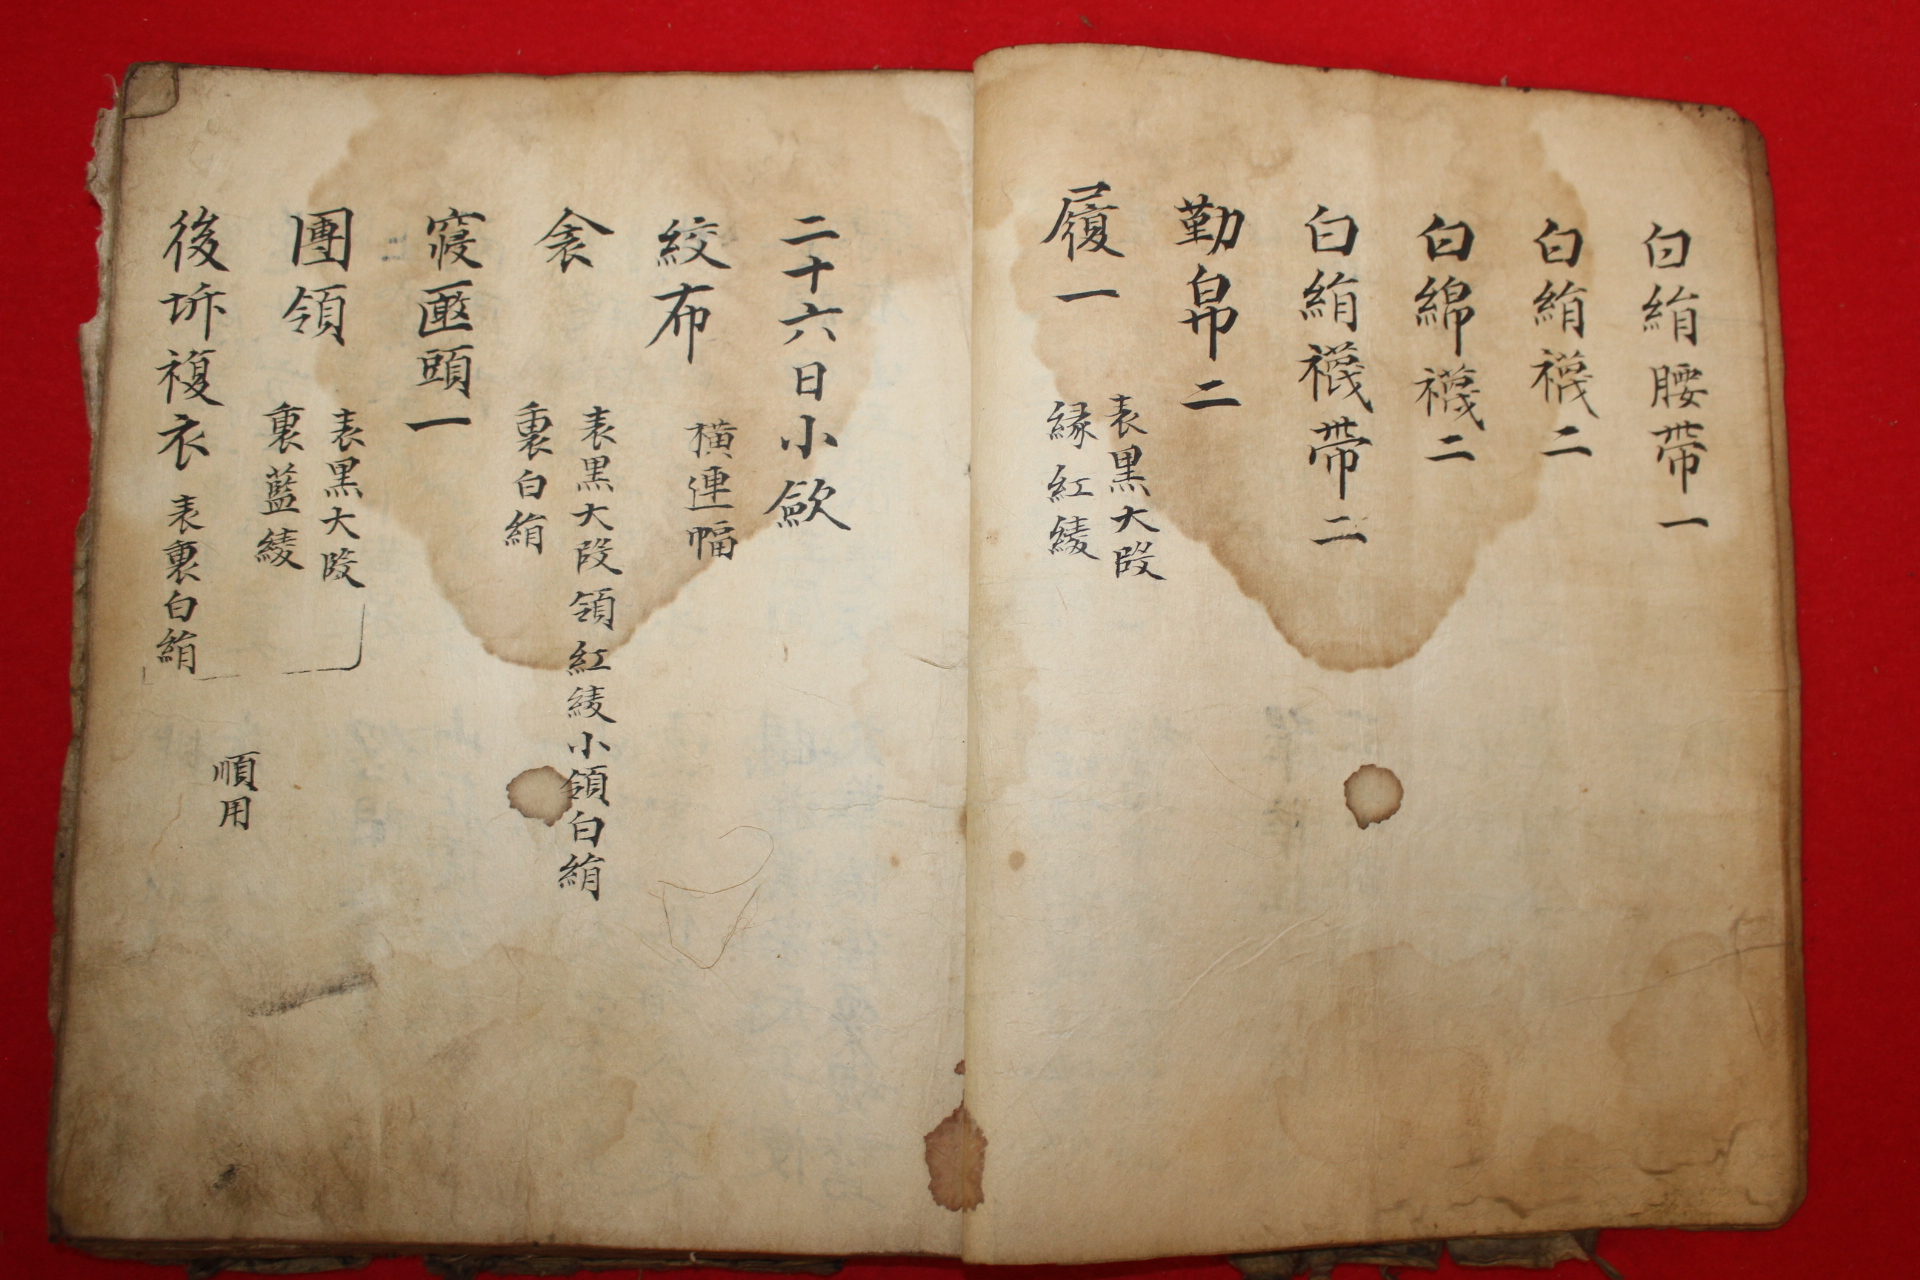 白絹腰帶一
白絹襪二
白綿襪二
白絹襪帶二
勒帛二
履一
表黑大段
緣紅綾
二十六日小歛
絞布
橫連幅
衾
表黑大段領紅綾小領白絹
裏白絹
寢匭頭一
團領
表黑大段
裏藍綾
後坼複衣
表裏白絹
順用